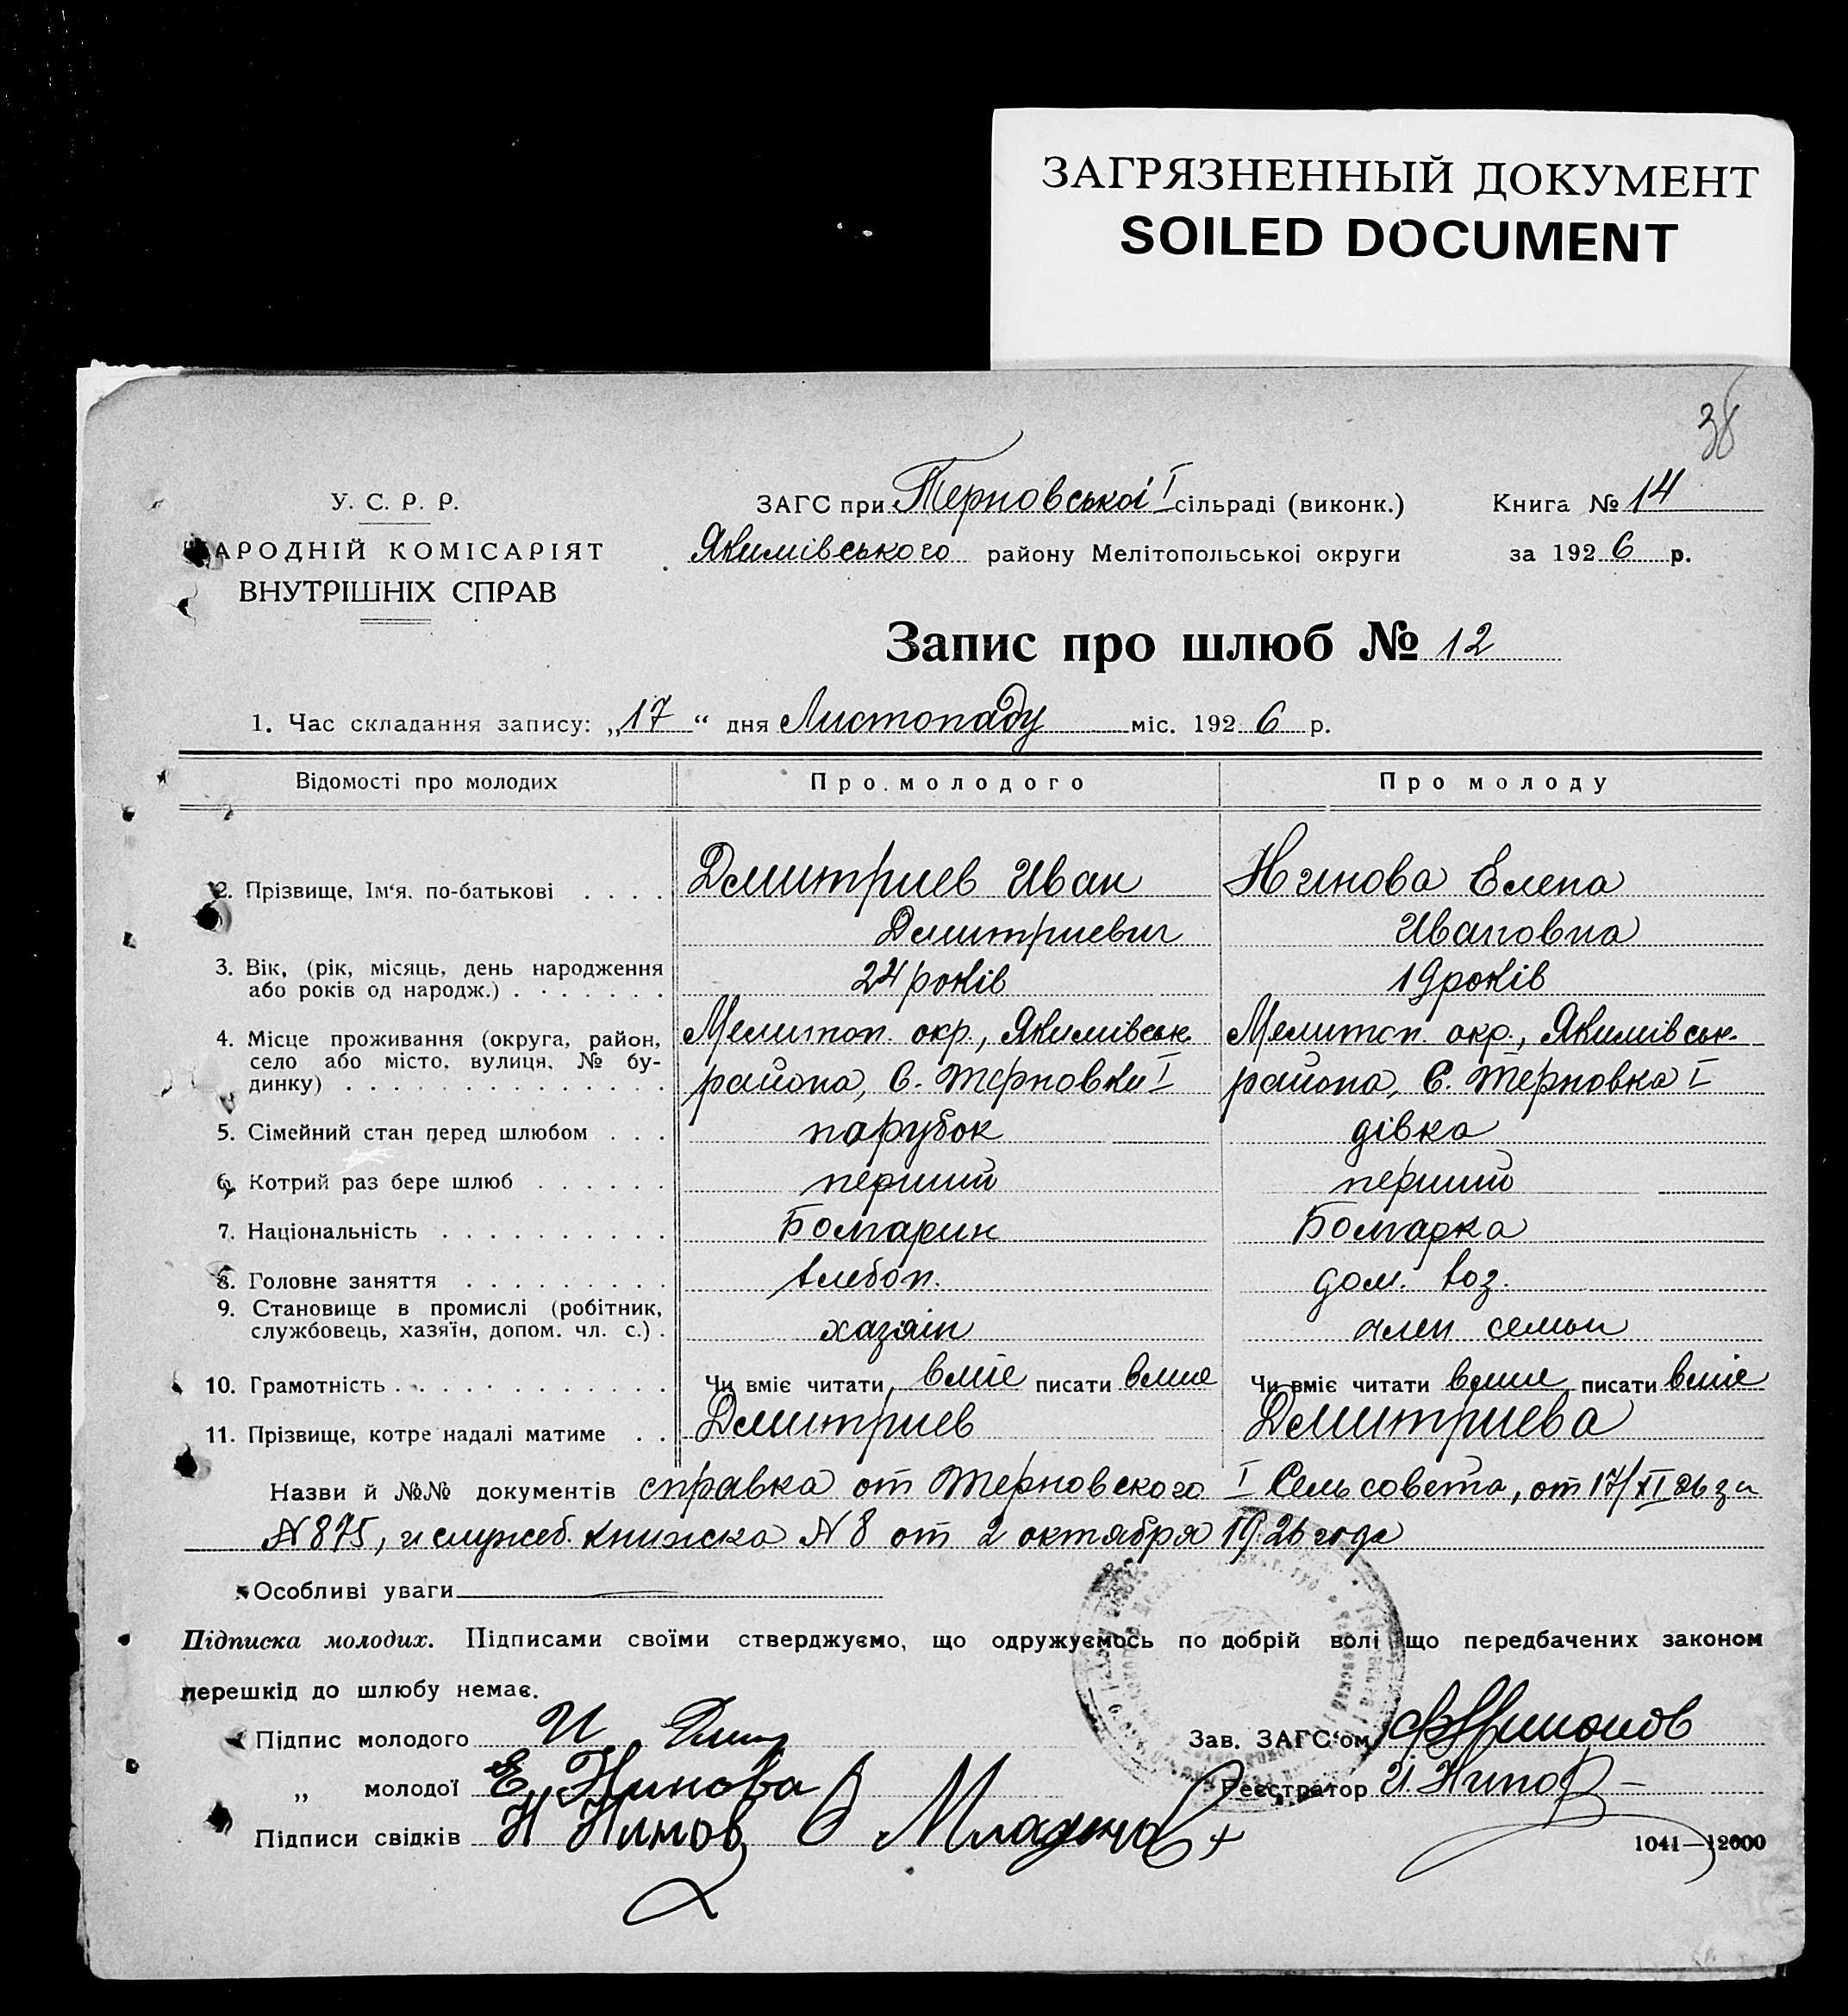 ЗАГРЯЗНЕННЫЙ ДОКУМЕНТ
SOILED DOCUMENT
38
У. С. Р. Р.
АРОДНІЙ КОМІСАРІЯТ
ВНУТРІШНІХ СПРАВ
ЗАГС при Терновської I сільраді (виконк.)
Якимівського району Мелітопольської округи
Книга № 14
за 1926 р.
Запис про шлюб № 12
1. Час складання запису: „17“ дня Листопаду міс. 1926 р.
Відомості про молодих Про молодого Про молоду
2. Прізвище, Ім'я, по-батькові . . . . Дмитриев Иван Нинова Елена
Дмитриевич Ивановна
3. Вік, (рік, місяць, день народження
або років од народж.) . . . . . . . 24 років 19 років
4. Місце проживання (округа, район, Мелитоп. окр., Якимівськ. Мелитоп. окр., Якимівськ.
село або місто, вулиця, № бу-
динку) . . . . . . . . . . . . . . района, с. Терновки I района, с. Терновка I
5. Сімейний стан перед шлюбом . . . парубок дівка
6. Котрий раз бере шлюб . . . . . . перший перший
7. Національність . . . . . . . . . . Болгарин Болгарка
8. Головне заняття . . . . . . . . . хлебоп. дом. хоз.
9. Становище в промислі (робітник,
службовець, хазяїн, допом. чл. с.) . хазяін член семьи
10. Грамотність . . . . . . . . . . . . Чи вміє читати вміе писати вмие Чи вміє читати вмие писати вміе
11. Прізвище, котре надалі матиме . . Дмитриев Дмитриева
Назви й №№ документів справка от Терновского I Сельсовета, от 17/XI 26 за
№ 875, и служеб. книжка № 8 от 2 октября 1926 года
Особливі уваги
Підписка молодих. Підписами своїми стверджуємо, що одружуємось по добрій волі що передбачених законом
перешкід до шлюбу немає.
Підпис молодого И Дми
Зав. ЗАГС'ом
„ молодої Е. Нинова
Реєстратор И. Нинов
Підписи свідків Н Нинов Младенов
1041—12000